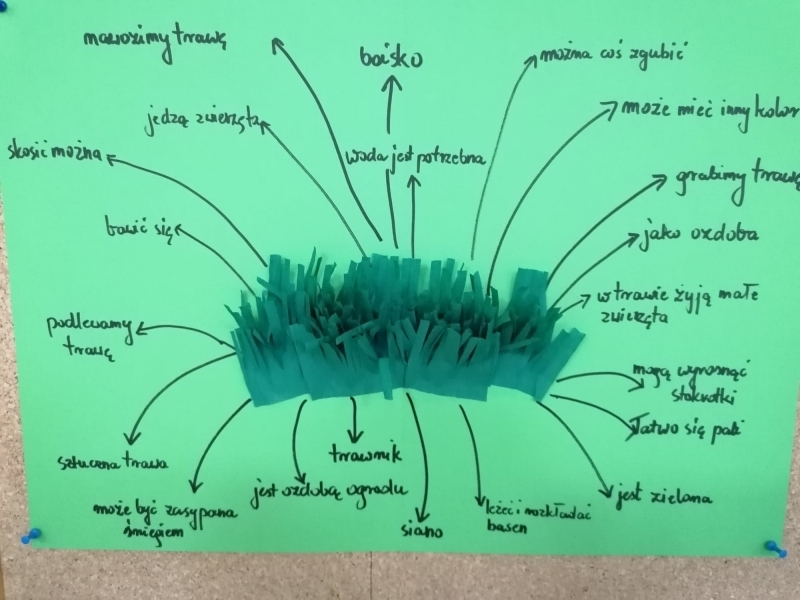 nawozimy trawę
boisko
można coś zgubić
jedzą zwierzęta
może mieć inny kolor
skosić można
woda jest potrzebna
grabimy trawę
bawić się
jako ozdoba
w trawie żyją małe
zwierzęta
podlewamy
trawę
mogą wyrosnąć
stokrotki
łatwo się pali
sztuczna trawa
trawnik
jest ozdobą ogrodu
jest zielona
może być zasypana
śniegiem
siano
leżeć i rozkładać
basen